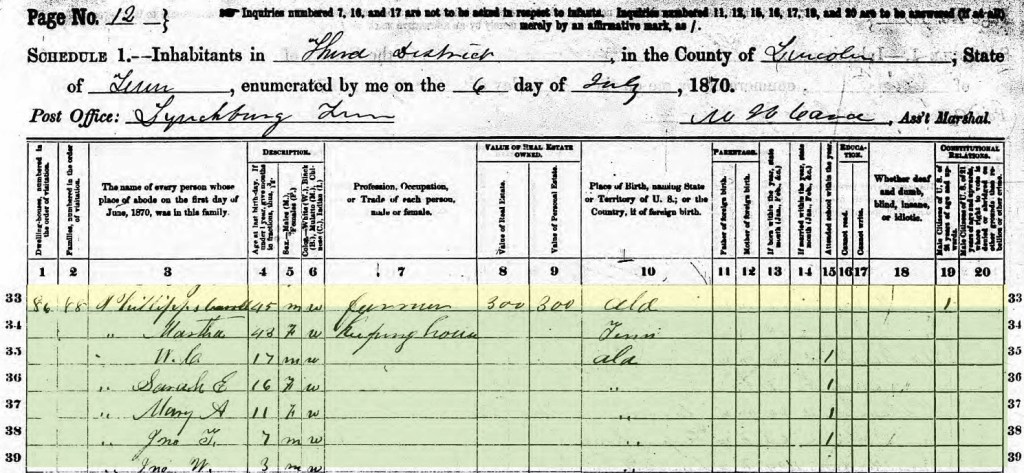 Page No. 12 }
☞ Inquiries numbered 7, 16, and 17 are not to be asked in respect to infants. Inquiries numbered 11, 12, 15, 16, 17, 19, and 20 are to be answered (if at all)
merely by an affirmative mark, as /.
SCHEDULE 1.—Inhabitants in Third District, in the County of Lincoln, State
of Tenn, enumerated by me on the 6 day of July, 1870.
Post Office: Lynchburg Tenn
, Ass't Marshal.
DESCRIPTION. VALUE OF REAL ESTATE OWNED. PARENTAGE. EDUCATION. CONSTITUTIONAL RELATIONS.
Dwelling-houses, numbered in the order of visitation.
Families, numbered in the order of visitation.
The name of every person whose place of abode on the first day of June, 1870, was in this family.
Age at last birth-day. If under 1 year, give months in fractions, thus, 
Sex.—Males (M.), Females (F.)
Color.—White (W.), Black (B.), Mulatto (M.), Chinese (C.), Indian (I.)
Profession, Occupation, or Trade of each person, male or female.
Value of Real Estate.
Value of Personal Estate.
Place of Birth, naming State or Territory of U. S.; or the Country, if of foreign birth.
Father of foreign birth.
Mother of foreign birth.
If born within the year, state month (Jan., Feb., &c.)
If married within the year, state month (Jan., Feb., &c.)
Attended school within the year.
Cannot read.
Cannot write.
Whether deaf and dumb, blind, insane, or idiotic.
Male Citizens of U. S. of 21 years of age and upwards.
1 2 3 4 5 6 7 8 9 10 11 12 13 14 15 16 17 18 19 20
33 86 88 Phillipps 45 m w farmer 300 300 Ala 1 33
34 " Martha 43 F w Keeping house Tenn 34
35 " W. C. 17 m w Ala 1 35
36 " Sarah E 16 F w " 1 36
37 " Mary A 11 F w " 1 37
38 " Jno F. 7 m w " 1 38
39 " Jno W. 3 m w 39